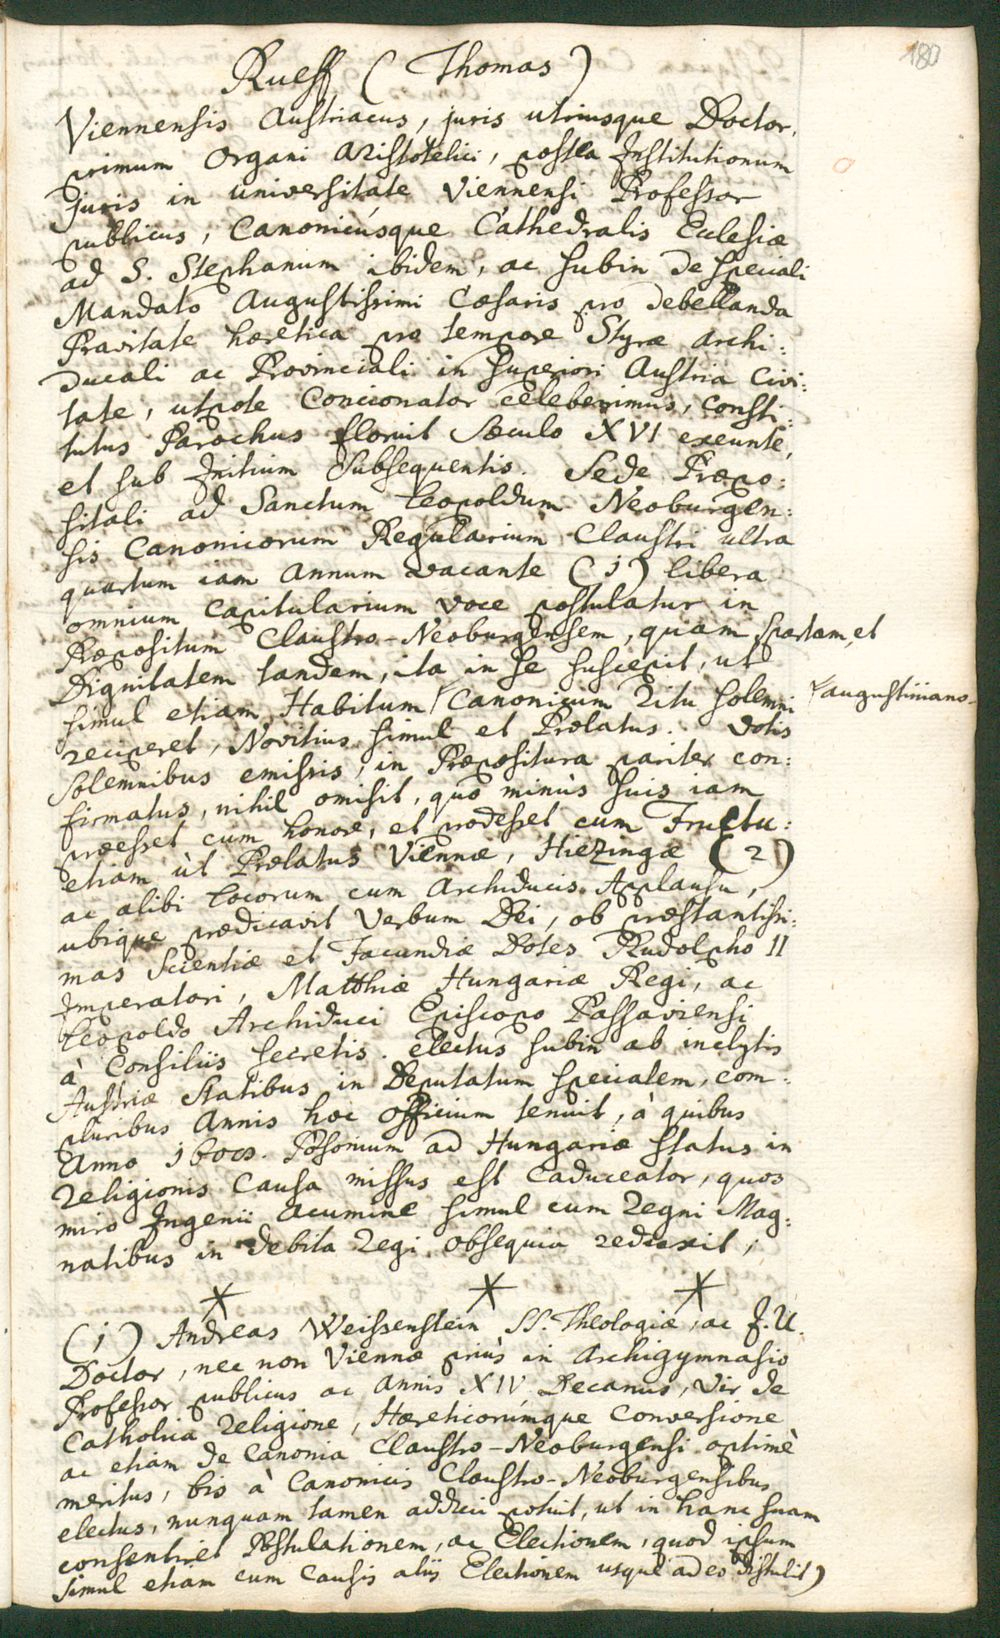 180
Rueff (Thomas)
Viennensis Austriacus, juris utriusque Doctor,
primum Organi Aristotelici, postea Institutionum
Juris in universitate Viennensi Professor
publicus, Canonicúsque Cathedralis Eclesiæ
ad S. Stephanum ibidem, ac subin de speciali
Mandato Augustissimi Cæsaris pro debellanda
Pravitate hæretica pro tempore Styræ Archi:
Ducali ac Provinciali in superiori Austria Civi:
tate, utpote Concionator celeberimus, consti:
tutus Parochus floruit Sæculo XVI exeunte,
et sub Initium subsequentis. Sede Præpo:
sitali ad Sanctum Leopoldum Neoburgen:
sis Canonicorum Regularium Claustri ultra
quartum iam Annum vacante (1) libera
omnium Capitularium voce postulatur in
Præpositum Claustro-Neoburgensem, quam spartam, et
Dignitatem tandem, ita in se suscepit, ut
simul etiam Habitum Canonicum Ritu solemni
augustiniano
reciperet, Novitius simul et Prælatus. Votis
solemnibus emissis, in Præpositura pariter con:
firmatus, nihil omisit, quo minùs suis iam
præesset cum honore, et prodesset cum Fructu:
etiam ùt Prælatus Viennæ, Hiezingæ (2)
ac alibi locorum cum Archiducis Applausu,
ubique prædicavit Verbum Dei, ob præstantissi:
mas Scientiæ et Facundiæ Dotes Rudolpho II
Imperatori, Matthiæ Hungariæ Regi, ac
Leopoldo Archiduci Episcopo Passaviensi
à Consiliis secretis. electus subin ab inclytis
Austriæ Statibus in Deputatum specialem, com:
pluribus Annis hoc officium tenuit, à quibus
Anno Posonium ad Hungariæ status in
Religionis Causa missus est Caduceator, quos
miro Ingenii Acumine simul cum Regni Mag:
natibus in debita Regi obsequia reduxit;
* * *
(1) Andreas Weissenstein SS. Theologiæ, ac J. U.
Doctor, nec non Viennæ priùs in Archigymnasio
Professor publicus ac Annis XIV Decanus, Vir de
Catholica Religione, Hæreticorúmque Conversione
ac etiam de Canonia Claustro-Neoburgensi optimè
meritus, bis à Canonicis Claustro-Neoburgensibus
electus, nunquam tamen adduci potuit, ut in hanc suam
consentiret Postulationem, ac Electionem, quod ipsum
simul etiam cum Causis aliis Electionem usque adeo distulit)